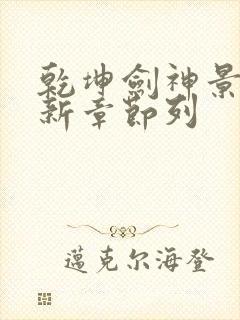 乾坤劍神景
新章節列
邁克尔海登